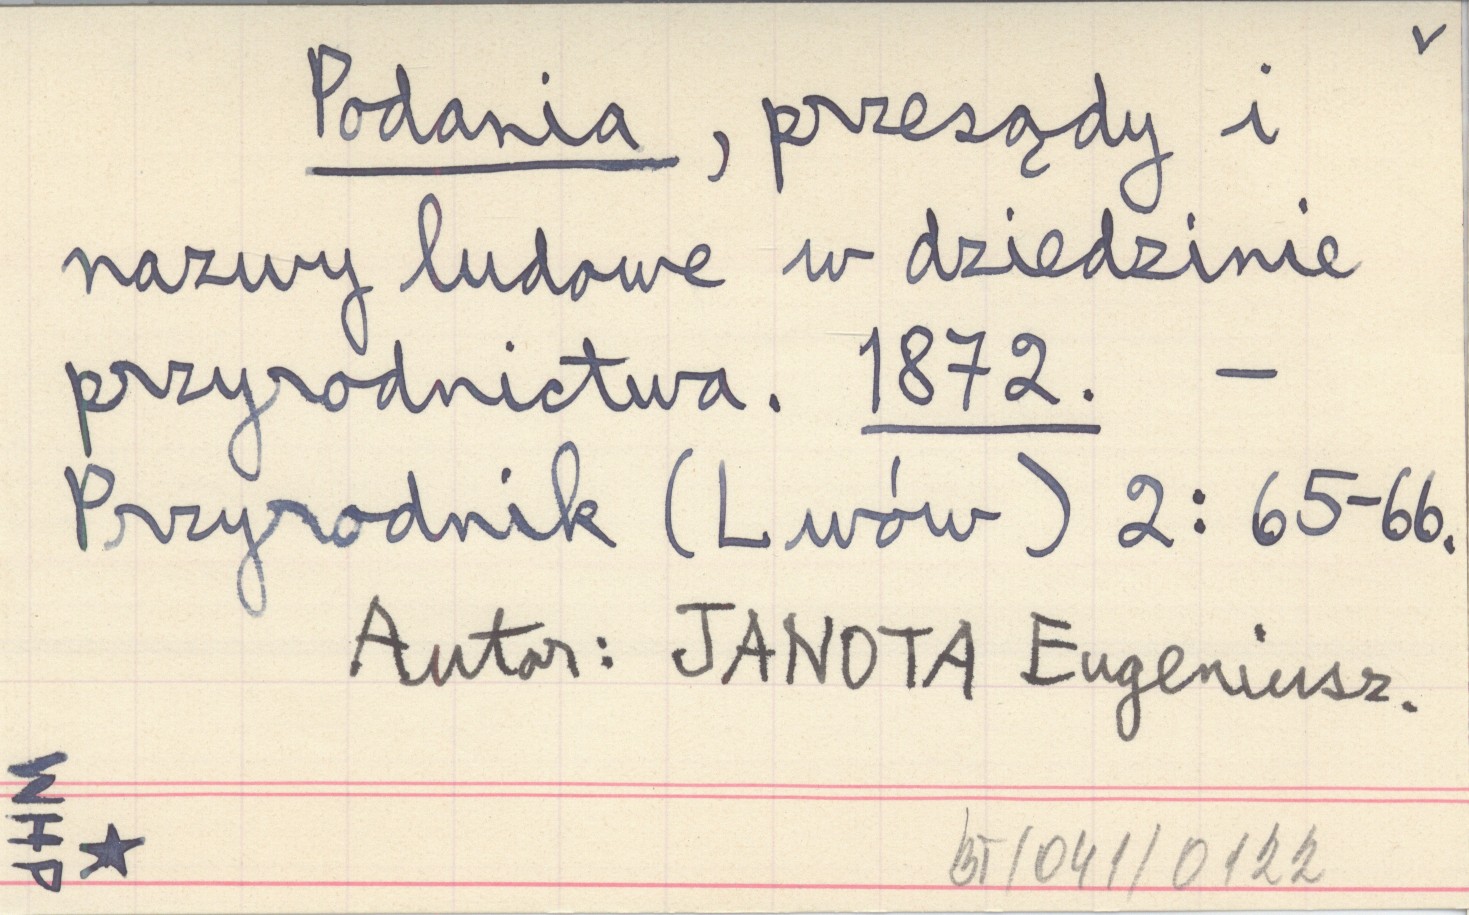 v
Podania, przesądy i
nazwy ludowe w dziedzinie
przyrodnictwa. 1872. –
Przyrodnik (Lwów) 2: 65-66.
Autor: JANOTA Eugeniusz.
BT/041/0122